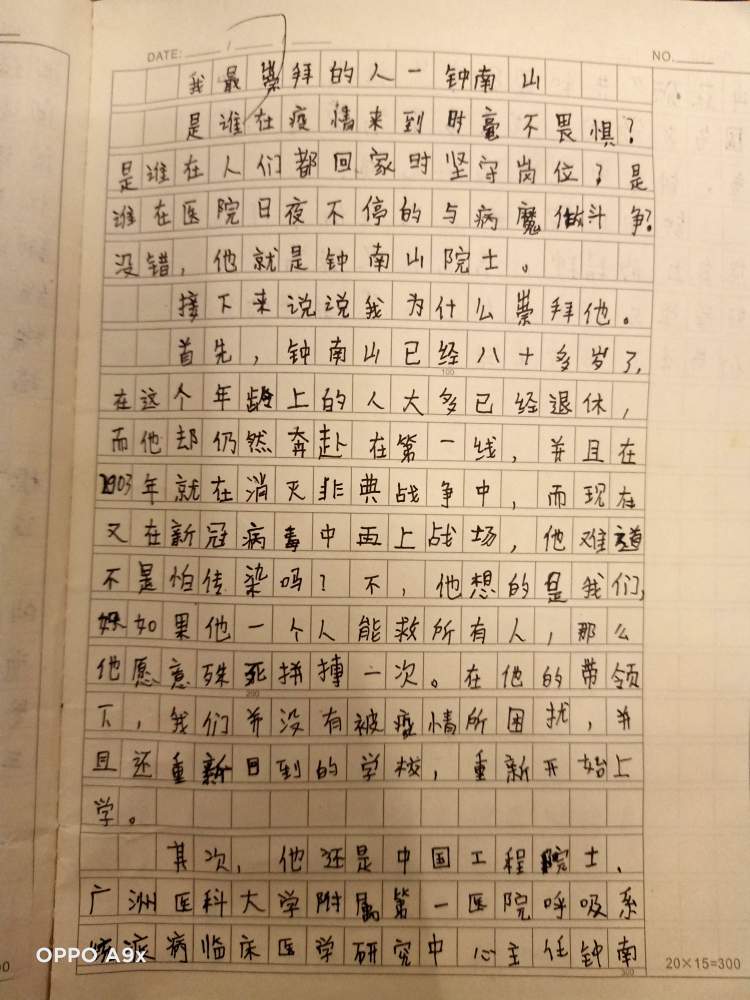 DATE: 1
NO.
我最崇拜的人一钟南山
是谁在疫情来到时毫不畏惧？
是谁在人们都回家时坚守岗位？是
谁在医院日夜不停的与病魔做斗争？
没错，他就是钟南山院士。
接下来说说我为什么崇拜他。
首先，钟南山已经八十多岁了，
100
在这个年龄上的人大多已经退休，
而他却仍然奔赴在第一线，并且在
2003年就在消灭非典战争中，而现在
又在新冠病毒中再上战场，他难道
不是怕传染吗？不，他想的是我们，
如果他一个人能救所有人，那么
他愿意殊死拼搏一次。在他的带领
200
下，我们并没有被疫情所困扰，并
且还重新回到的学校，重新开始上
学。
其次，他还是中国工程院士、
广洲医科大学附属第一医院呼吸系
疾病临床医学研究中心主任钟南
300
20×15=300
OPPO A9x
00